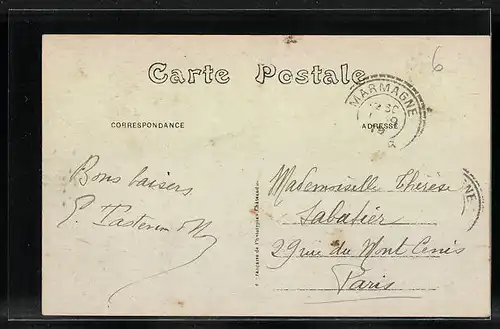 6
Carte Postale
MARMAGNE
CORRESPONDANCE
ADRESSE
Bons baisers
Mademoiselle Thérèse
Sabatier
29 rue du Mont Cenis
Paris